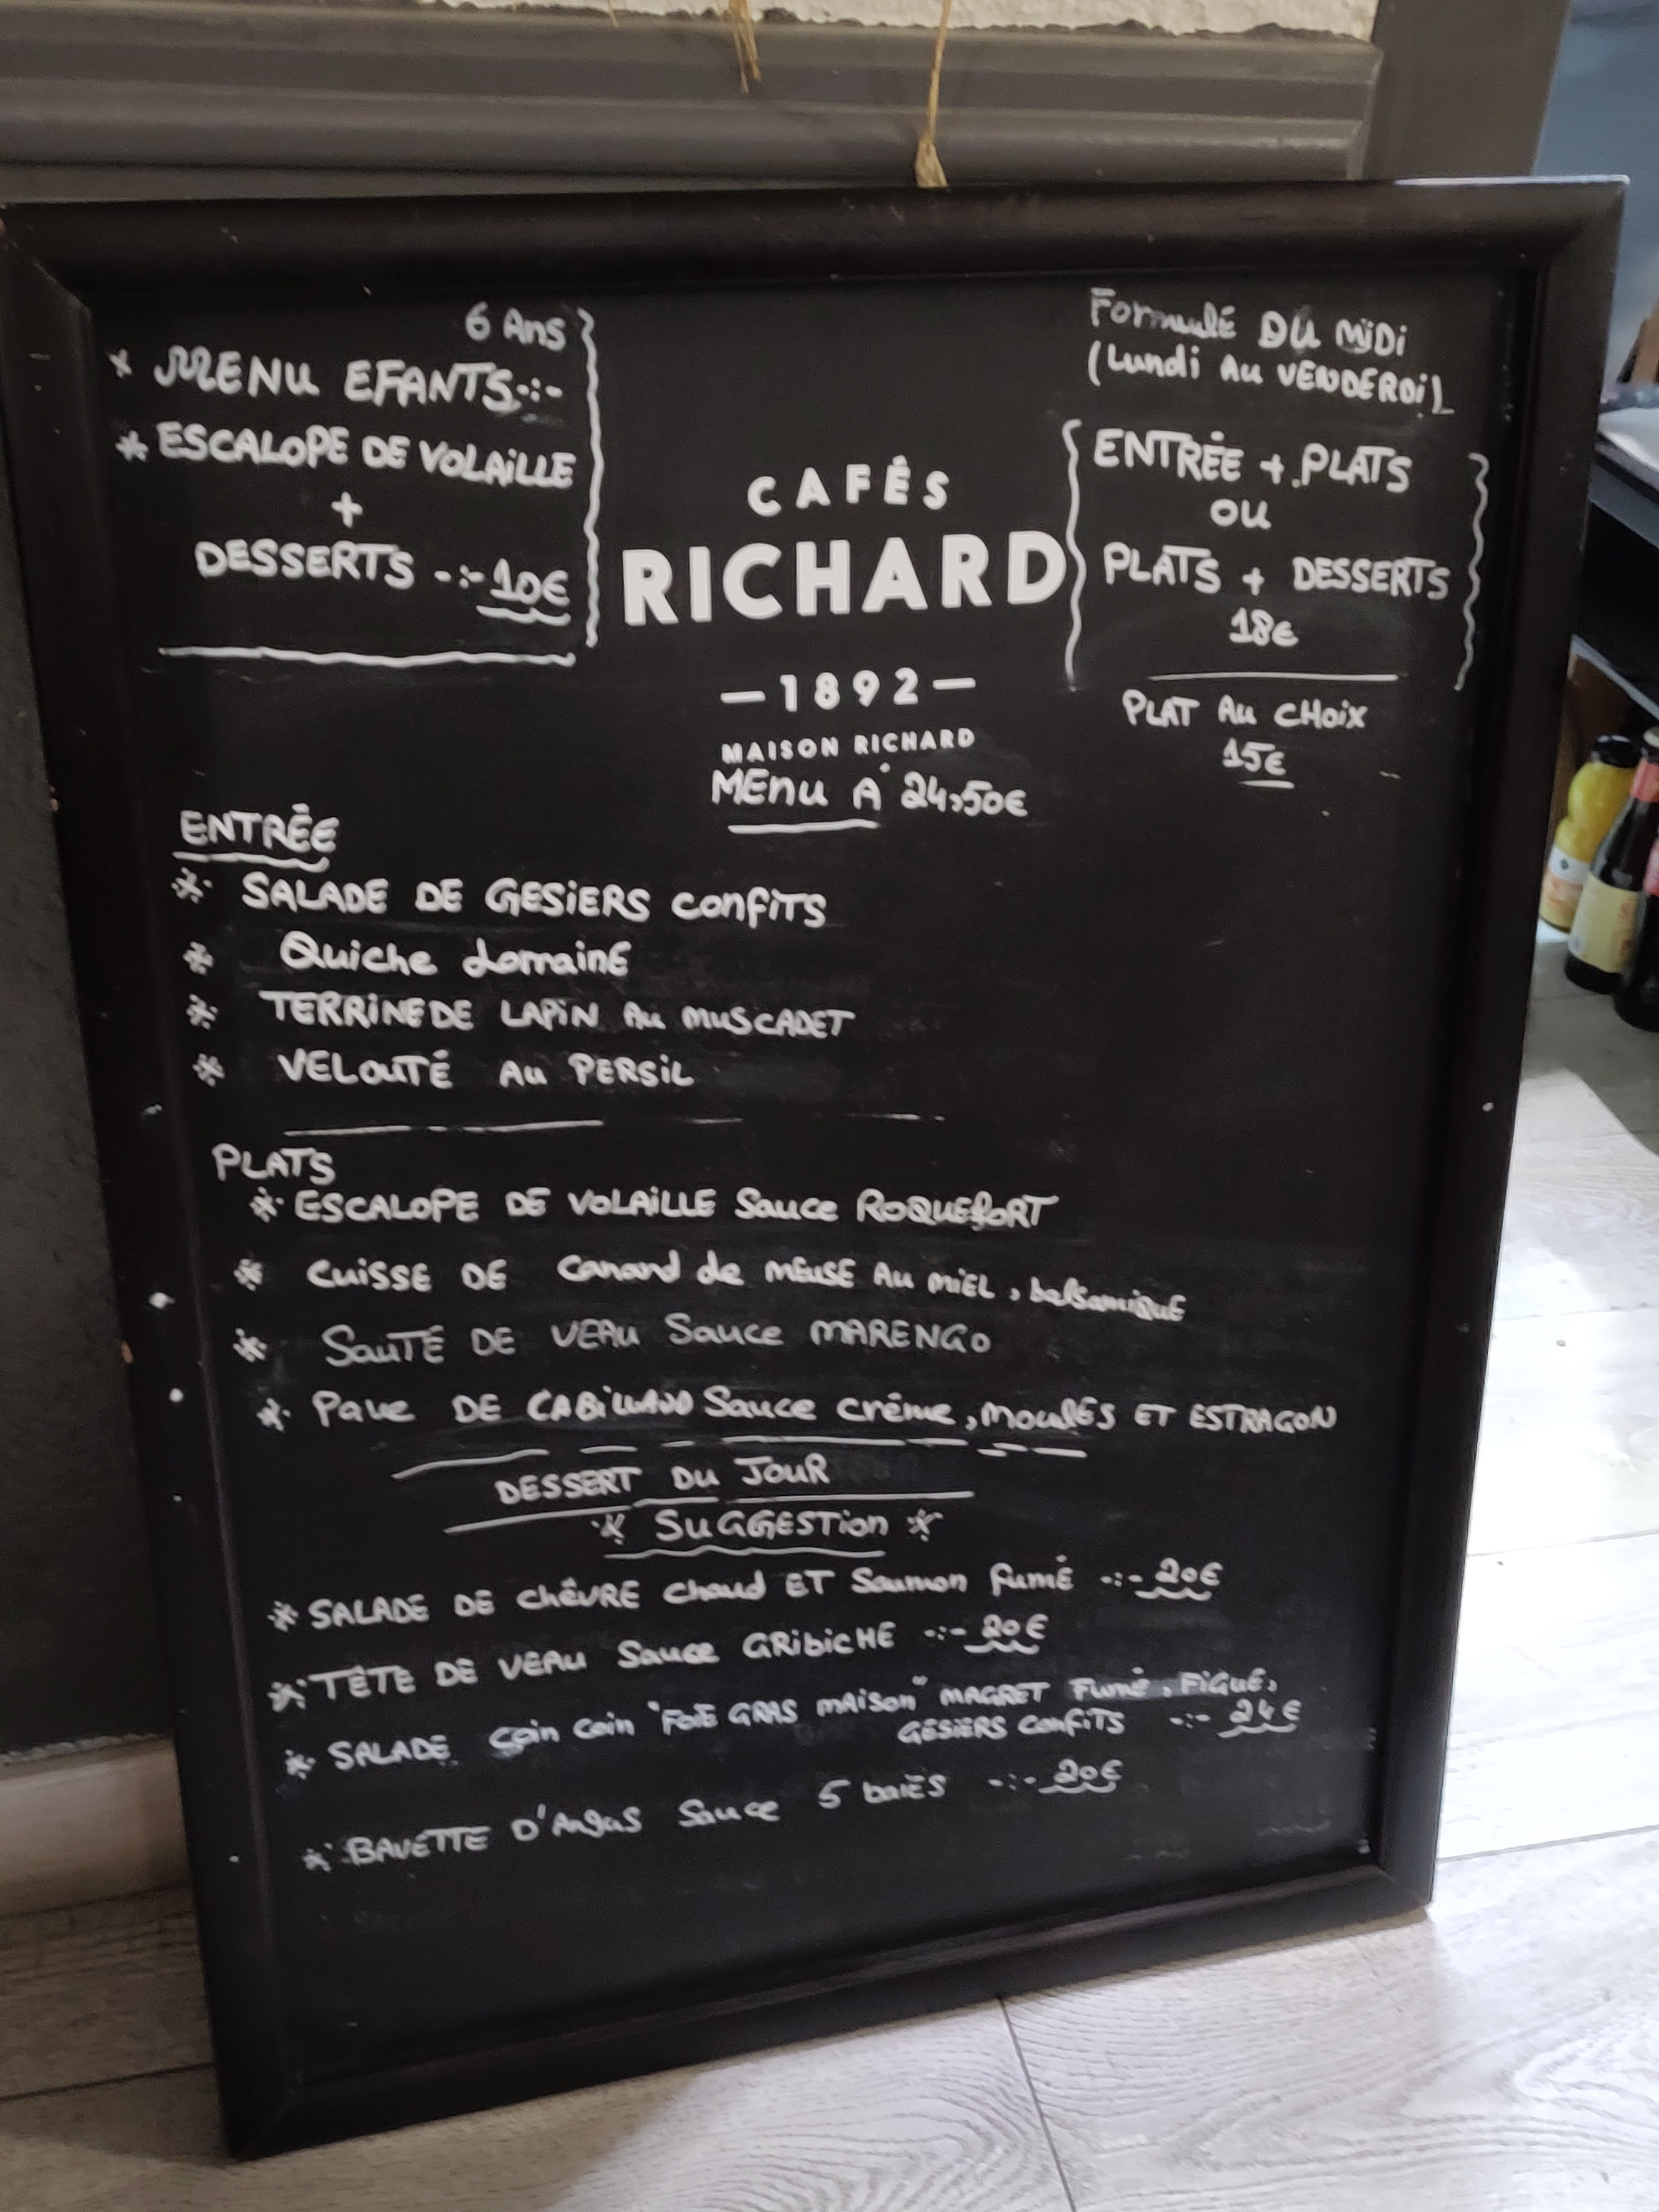 6 Ans
* MENU EFANTS-:-
* ESCALOPE DE VOLAILLE
+
DESSERTS -:- 10€
Formulé DU MiDi
(Lundi Au VENDEROI)
ENTRÉE + PLATS
OU
PLATS + DESSERTS
18€
PLAT Au CHOIX
15€
CAFÉS
RICHARD
— 1892 —
MAISON RICHARD
MENU A 24,50€
ENTRÉE
* SALADE DE GESIERS confiTS
* Quiche LorrainE
* TERRINE DE LAPIN Au MUSCADET
* VELOUTÉ Au PERSIL
PLATS
* ESCALOPE DE VOLAILLE Sauce ROQUEfORT
* CUISSE DE Canard de MEUSE AU MIEL, balsamiquE
* SAUTÉ DE VEAU Sauce MARENGO
* Pave DE CABILLAUD Sauce crême, moulES ET ESTRAGON
DESSERT DU JOUR
* SUGGESTION *
* SALADE DE chêVRE chaud ET Saumon fumé -:- 20€
* TÊTE DE VEAU Sauce GRibicHE -:- 20€
* SALADE Coin Coin "FOIE GRAS maison" MAGRET Fumé, FiGUE,
GESIERS ConfiTS -:- 24€
* BAVETTE D'Angus Sauce 5 baiES -:- 20€